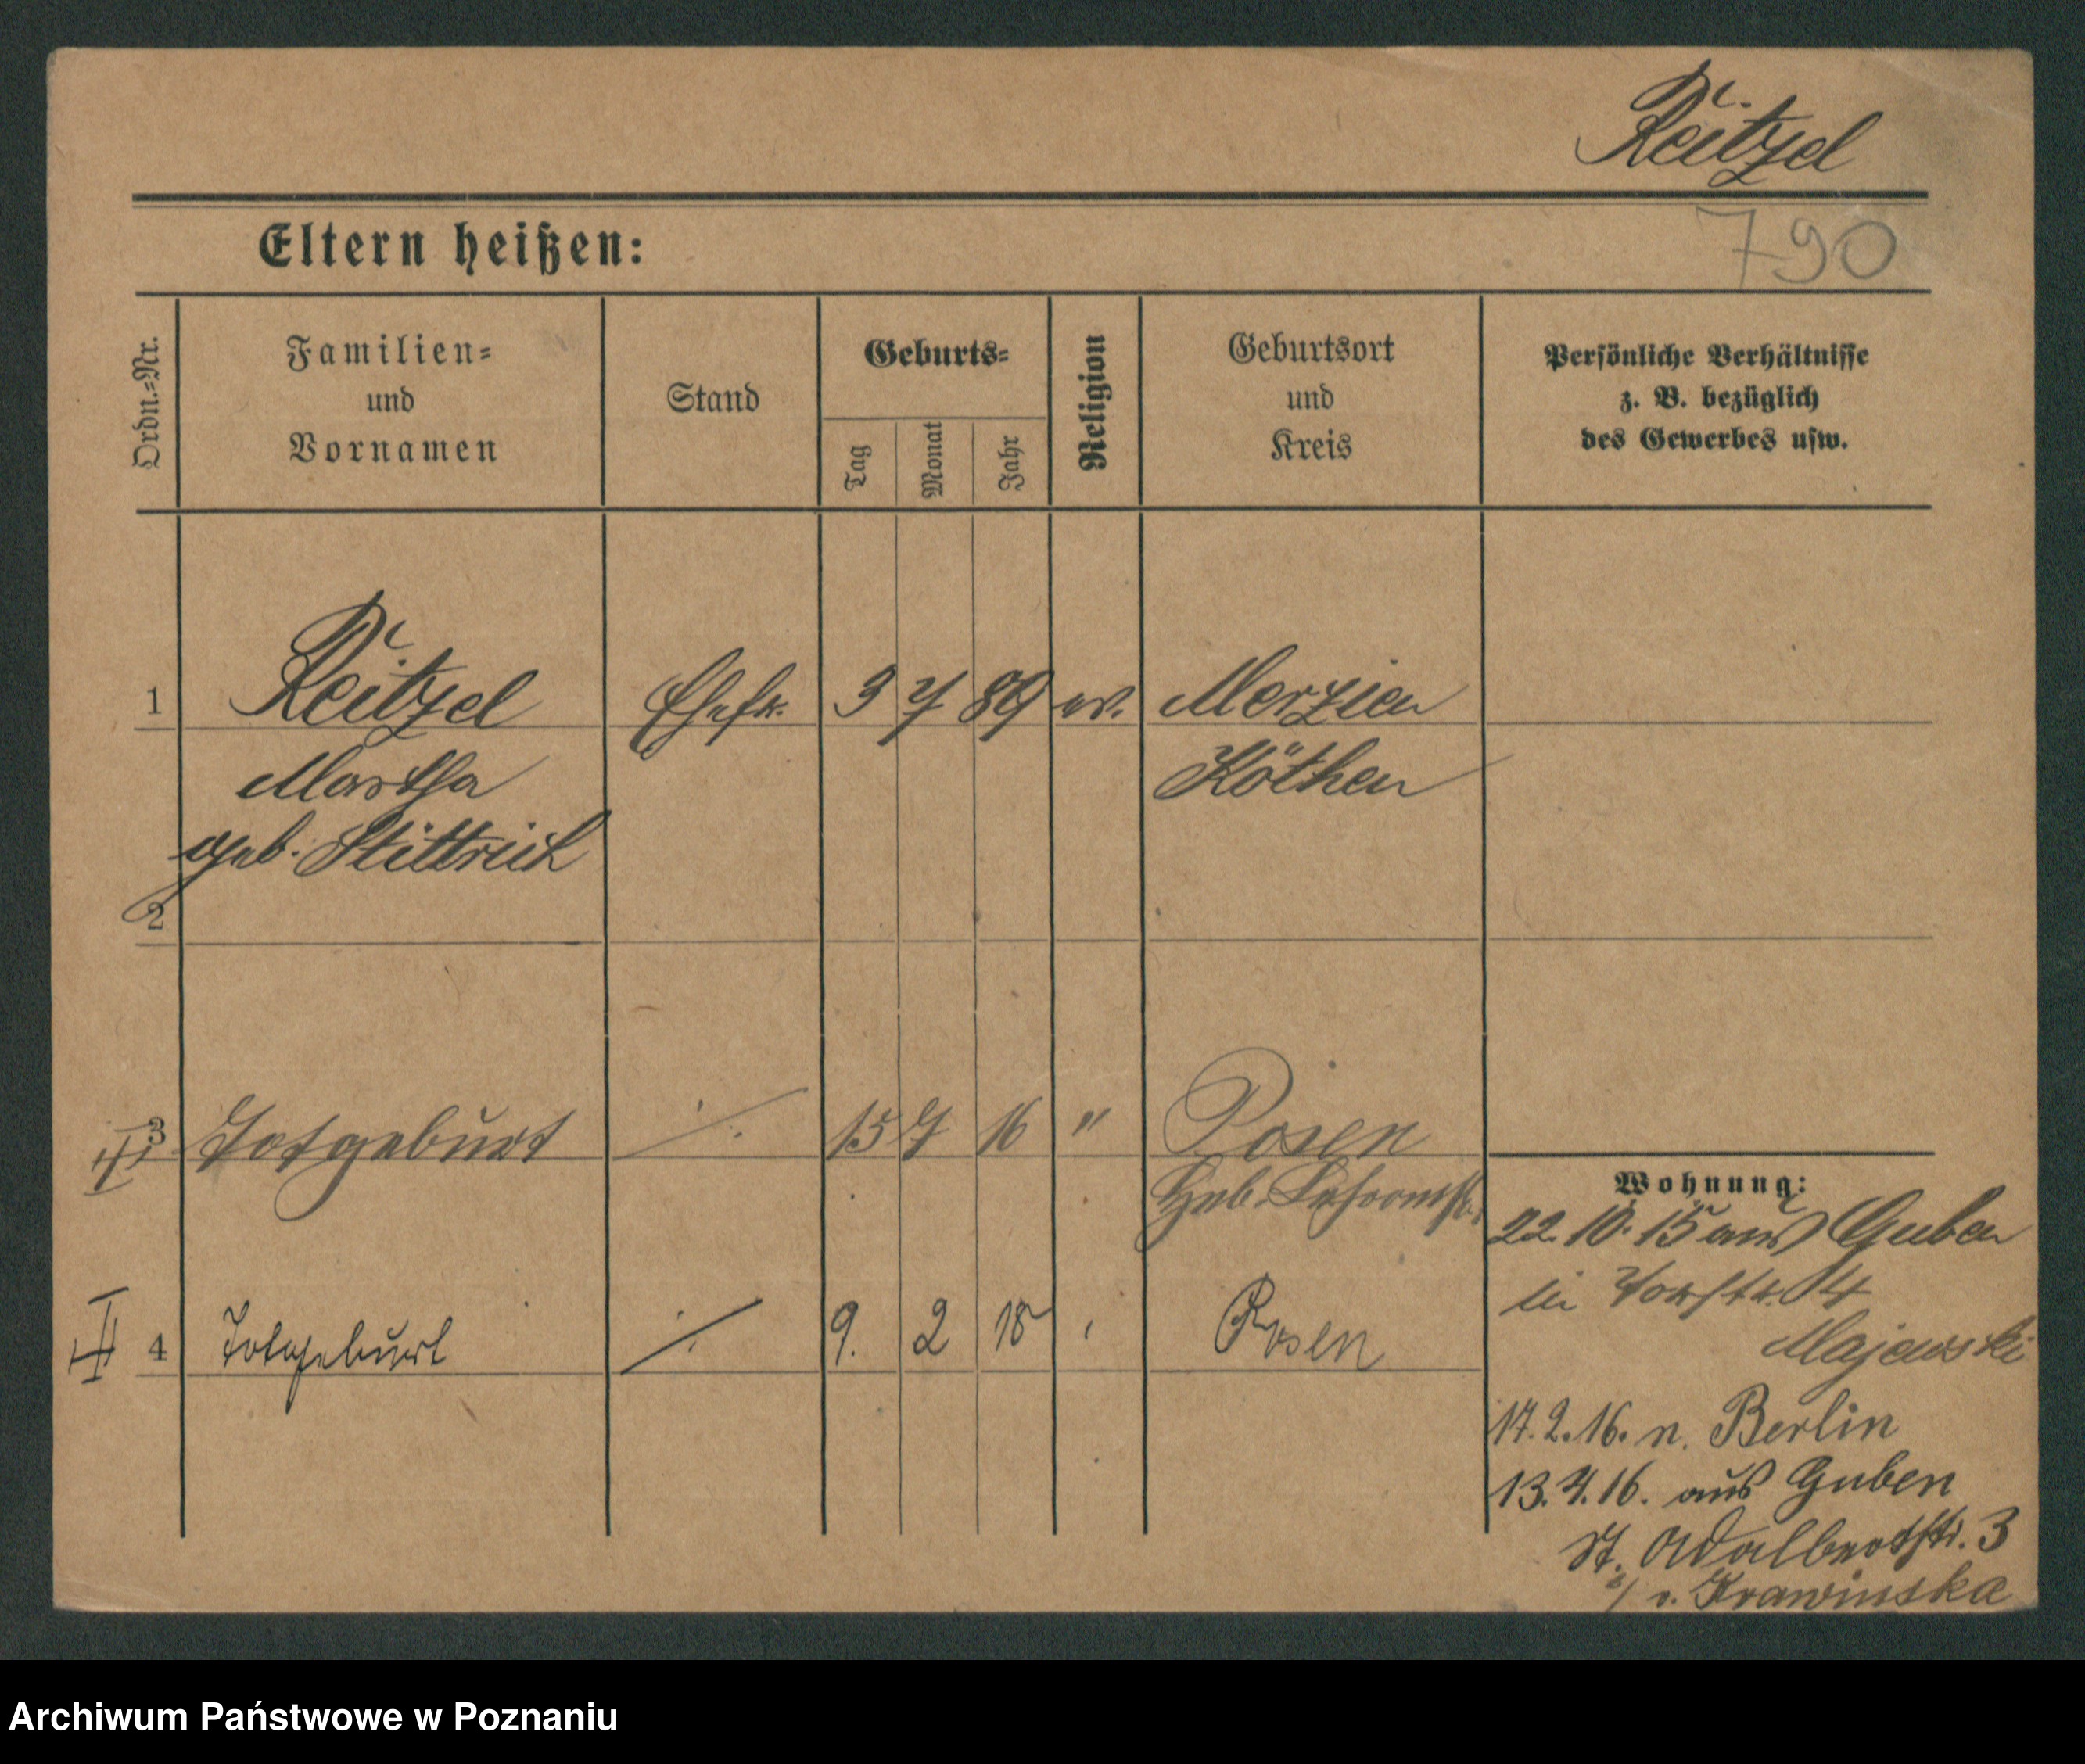 Reitzel
790
Eltern heißen:
Ordn.=Nr.
Familien=
und
Vornamen
Stand
Geburts=
Tag
Monat
Jahr
Religion
Geburtsort
und
Kreis
Persönliche Verhältnisse
z. B. bezüglich
des Gewerbes usw.
1 Reitzel Ehefr. 3 7 89 ev. Merzien
Martha Köthen
geb. Stittrich
2
3 Totgeburt ·/· 15 7 16 " Posen
Heb.
Wohnung:
22.10.15 aus Guben
in 14
Majewski
4 Totgeburt ·/· 9. 2 18 Posen
17.2.16. n. Berlin
13.4.16. aus Guben
St. Adalbertstr. 3
Krawinska
Archiwum Państwowe w Poznaniu